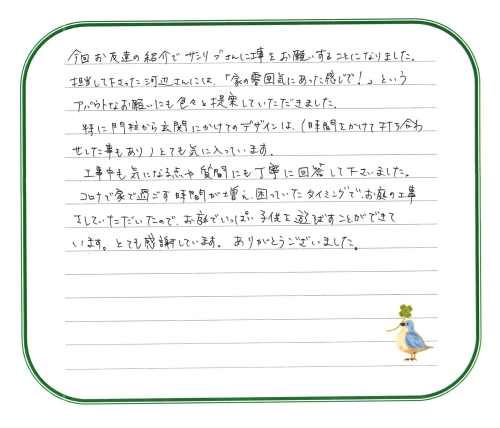 今回お友達の紹介でサンリブさんに工事をお願いすることになりました。
担当して下さった河辺さんには、「家の雰囲気にあった感じで！」という
アバウトなお願いにも色々と提案していただきました。
特に門柱から玄関にかけてのデザインは、(時間をかけて打ち合わ
せした事もあり)とても気に入っています。
工事中も気になる点や質問にも丁寧に回答して下さいました。
コロナで家で過ごす時間が増え、困っていたタイミングで、お庭の工事
をしていただいたので、お庭でいっぱい子供を遊ばすことができて
います。とても感謝しています。ありがとうございました。